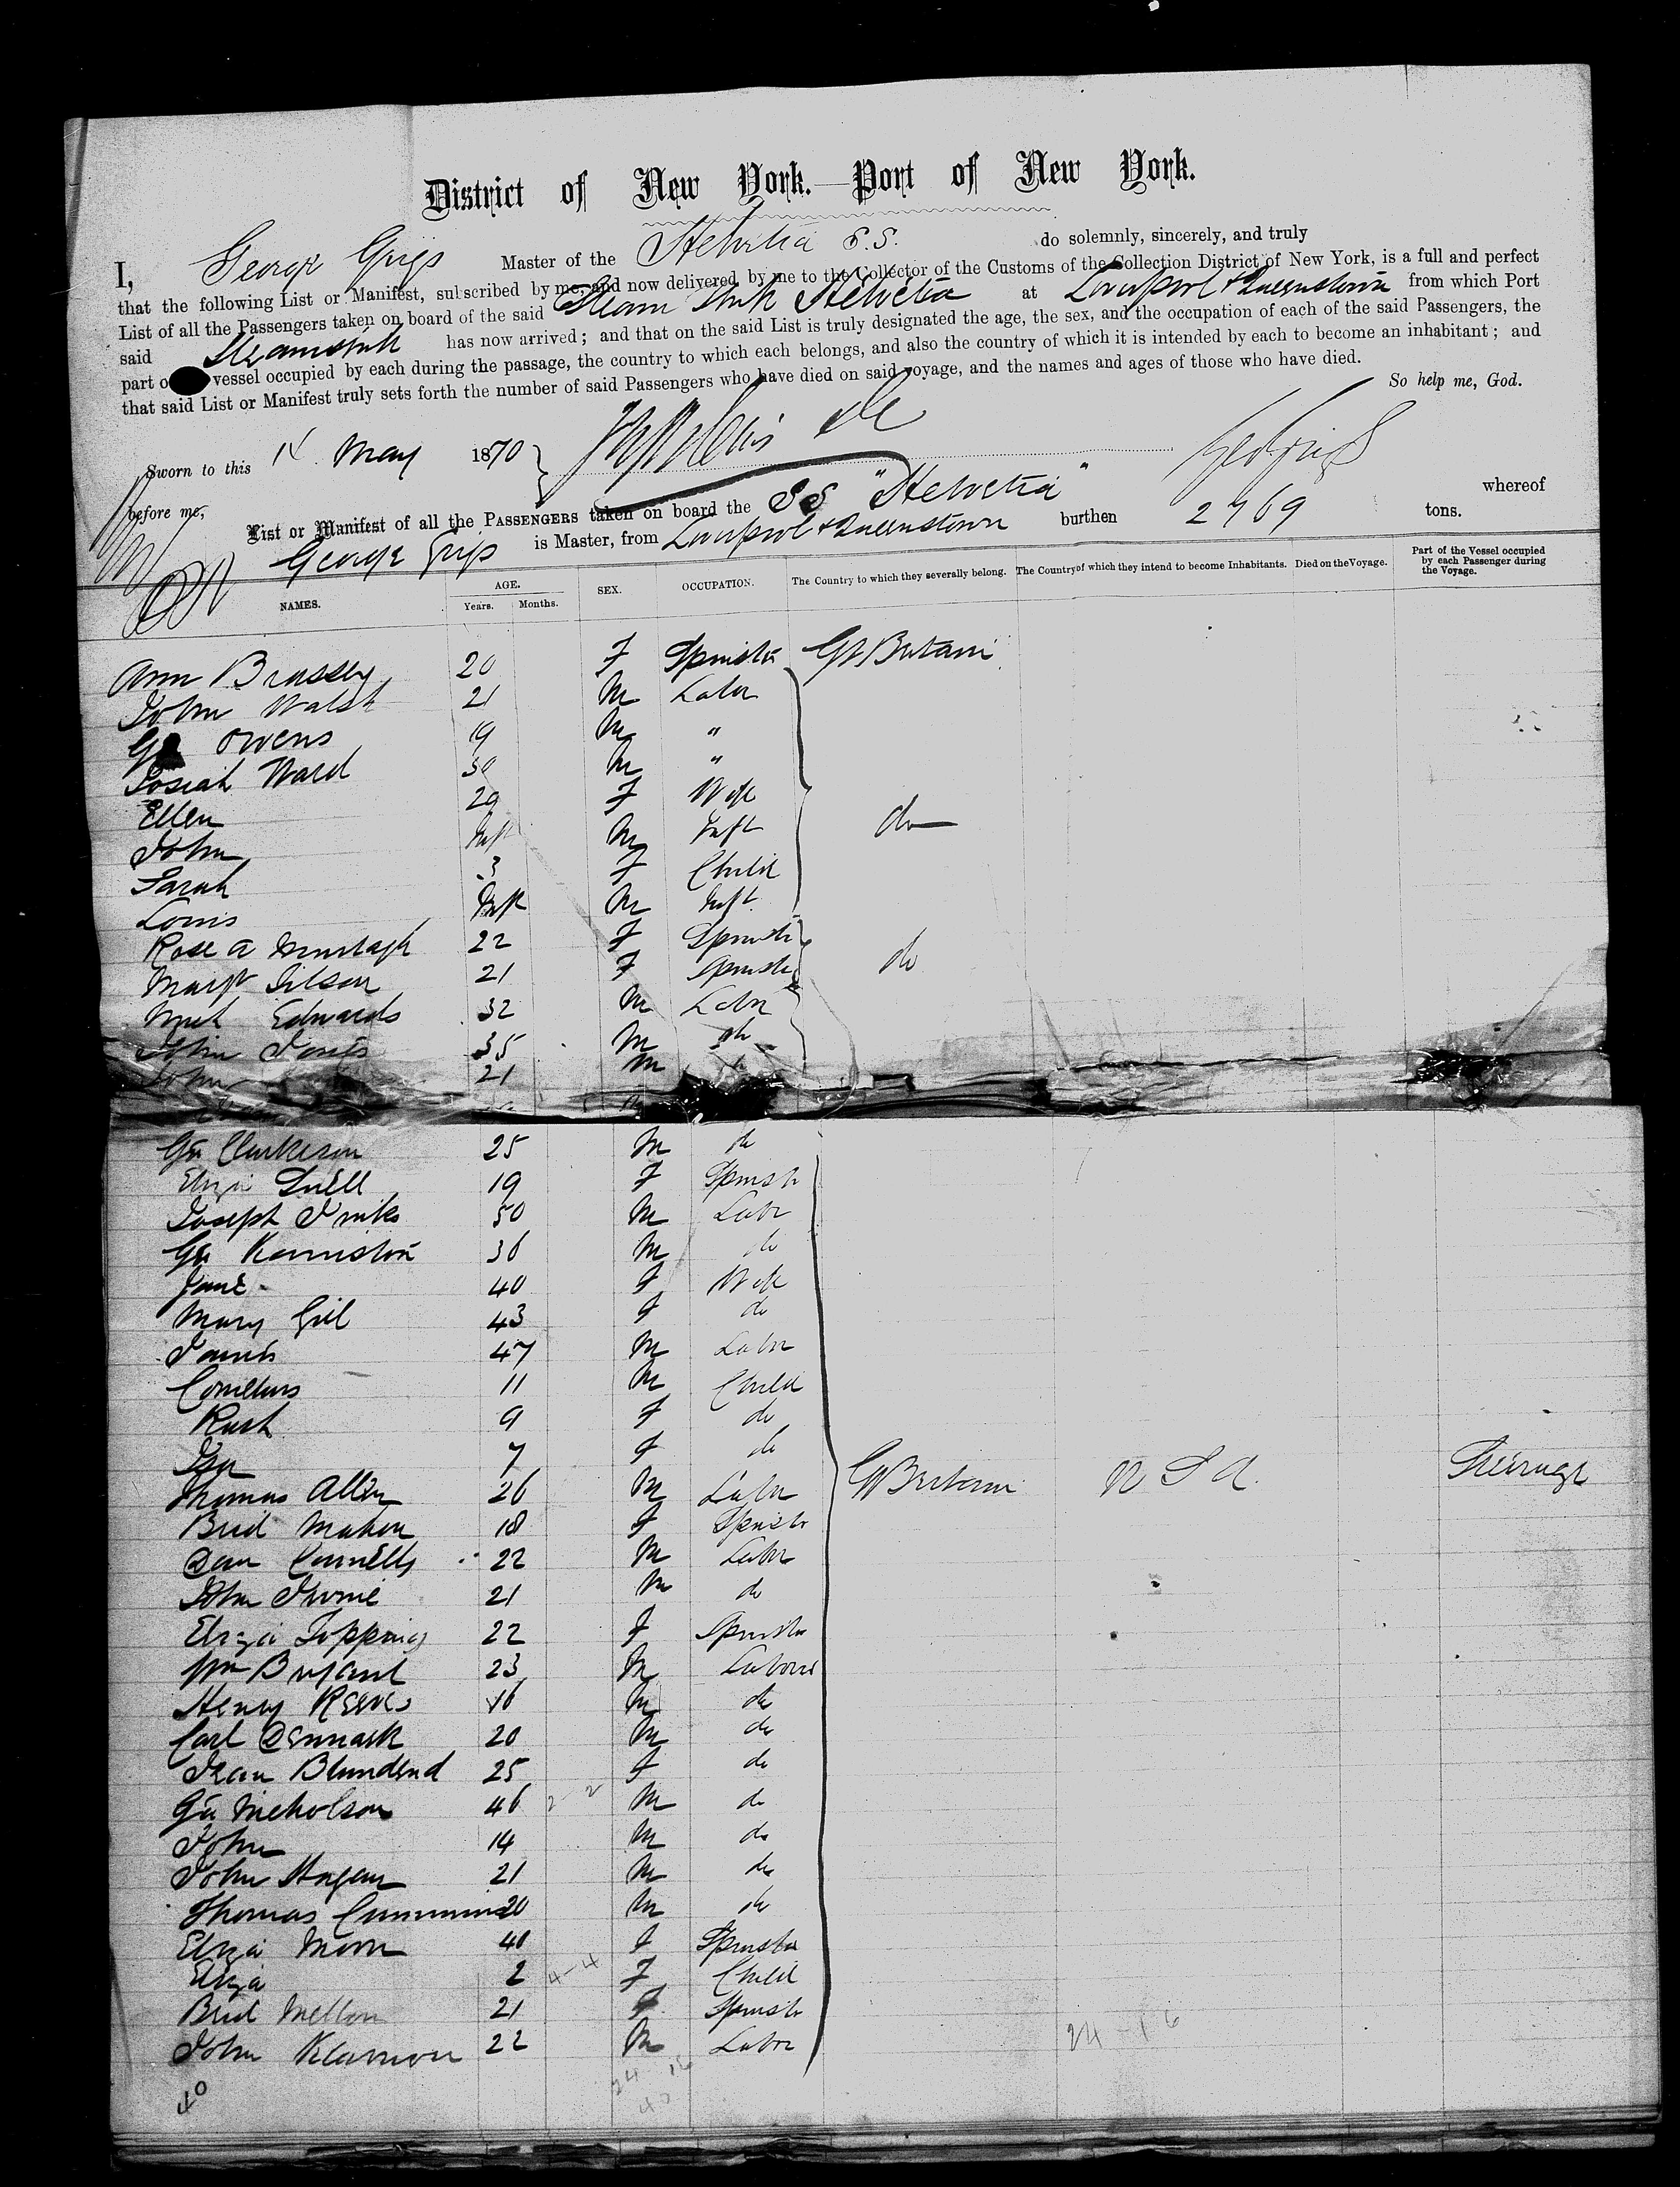 District of New York.—Port of New York.
I, George Grigs Master of the Helvetia S.S. do solemnly, sincerely, and truly
that the following List or Manifest, subscribed by me, and now delivered by me to the Collector of the Customs of the Collection District of New York, is a full and perfect
List of all the Passengers taken on board of the said Steam Ship Helvetia at Liverpool & Queenstown from which Port
said Steamship has now arrived; and that on the said List is truly designated the age, the sex, and the occupation of each of the said Passengers, the
part o vessel occupied by each during the passage, the country to which each belongs, and also the country of which it is intended by each to become an inhabitant; and
that said List or Manifest truly sets forth the number of said Passengers who have died on said voyage, and the names and ages of those who have died.
So help me, God.
Sworn to this 14 May 1870
before me, Geo Grigs
List or Manifest of all the PASSENGERS taken on board the SS "Helvetia" whereof
George Grigs is Master, from Liverpool & Queenstown burthen 2769 tons.
NAMES. AGE. Years. Months. SEX. OCCUPATION. The Country to which they severally belong. The Country of which they intend to become Inhabitants. Died on the Voyage. Part of the Vessel occupied by each Passenger during the Voyage.
Ann Brassey 20 F Spinster Gt Britain
John Walsh 21 M Labr
Owens 19 M "
Josiah Ward 30 M "
Ellen 29 F Wife
John Inft M Inft do
Sarah 3 F Child
Louis Inft M Inft
Rose A Murtagh 22 F Spinstr
Margt Gilson 21 F Spinstr do
Mich Edwards 32 M Labr
John Jones 35 M do
John 21 M
Geo Clarkeson 25 M do
Eliza Snell 19 F Spinstr
Joseph Jinks 50 M Labr
Geo Kenniston 36 M do
Jane 40 F Wife
Mary Gill 43 F do
James 47 M Labr
Cornelius 11 M Child
Ruth 9 F do
7 F do
Thomas Allen 26 M Labr Gt Britain U S A. Steerage
Brid Mahon 18 F Spinstr
Dan Connells 22 M Labr
John 21 M do
Eliza Topping 22 F Spinster
Wm Bryant 23 M Labour
Henry Reeves 16 M do
Carl Denmark 20 M do
Jean Blundend 25 F do
Geo Nicholson 46 2-2 M do
John 14 M do
John Hagan 21 M do
Thomas Cummins 20 M do
Eliza Moon 40 F Spinster
Eliza 2 4-4 F Child
Brid Mellon 21 F Spinstr
John 22 M Labr
24-16
24 16
40
40